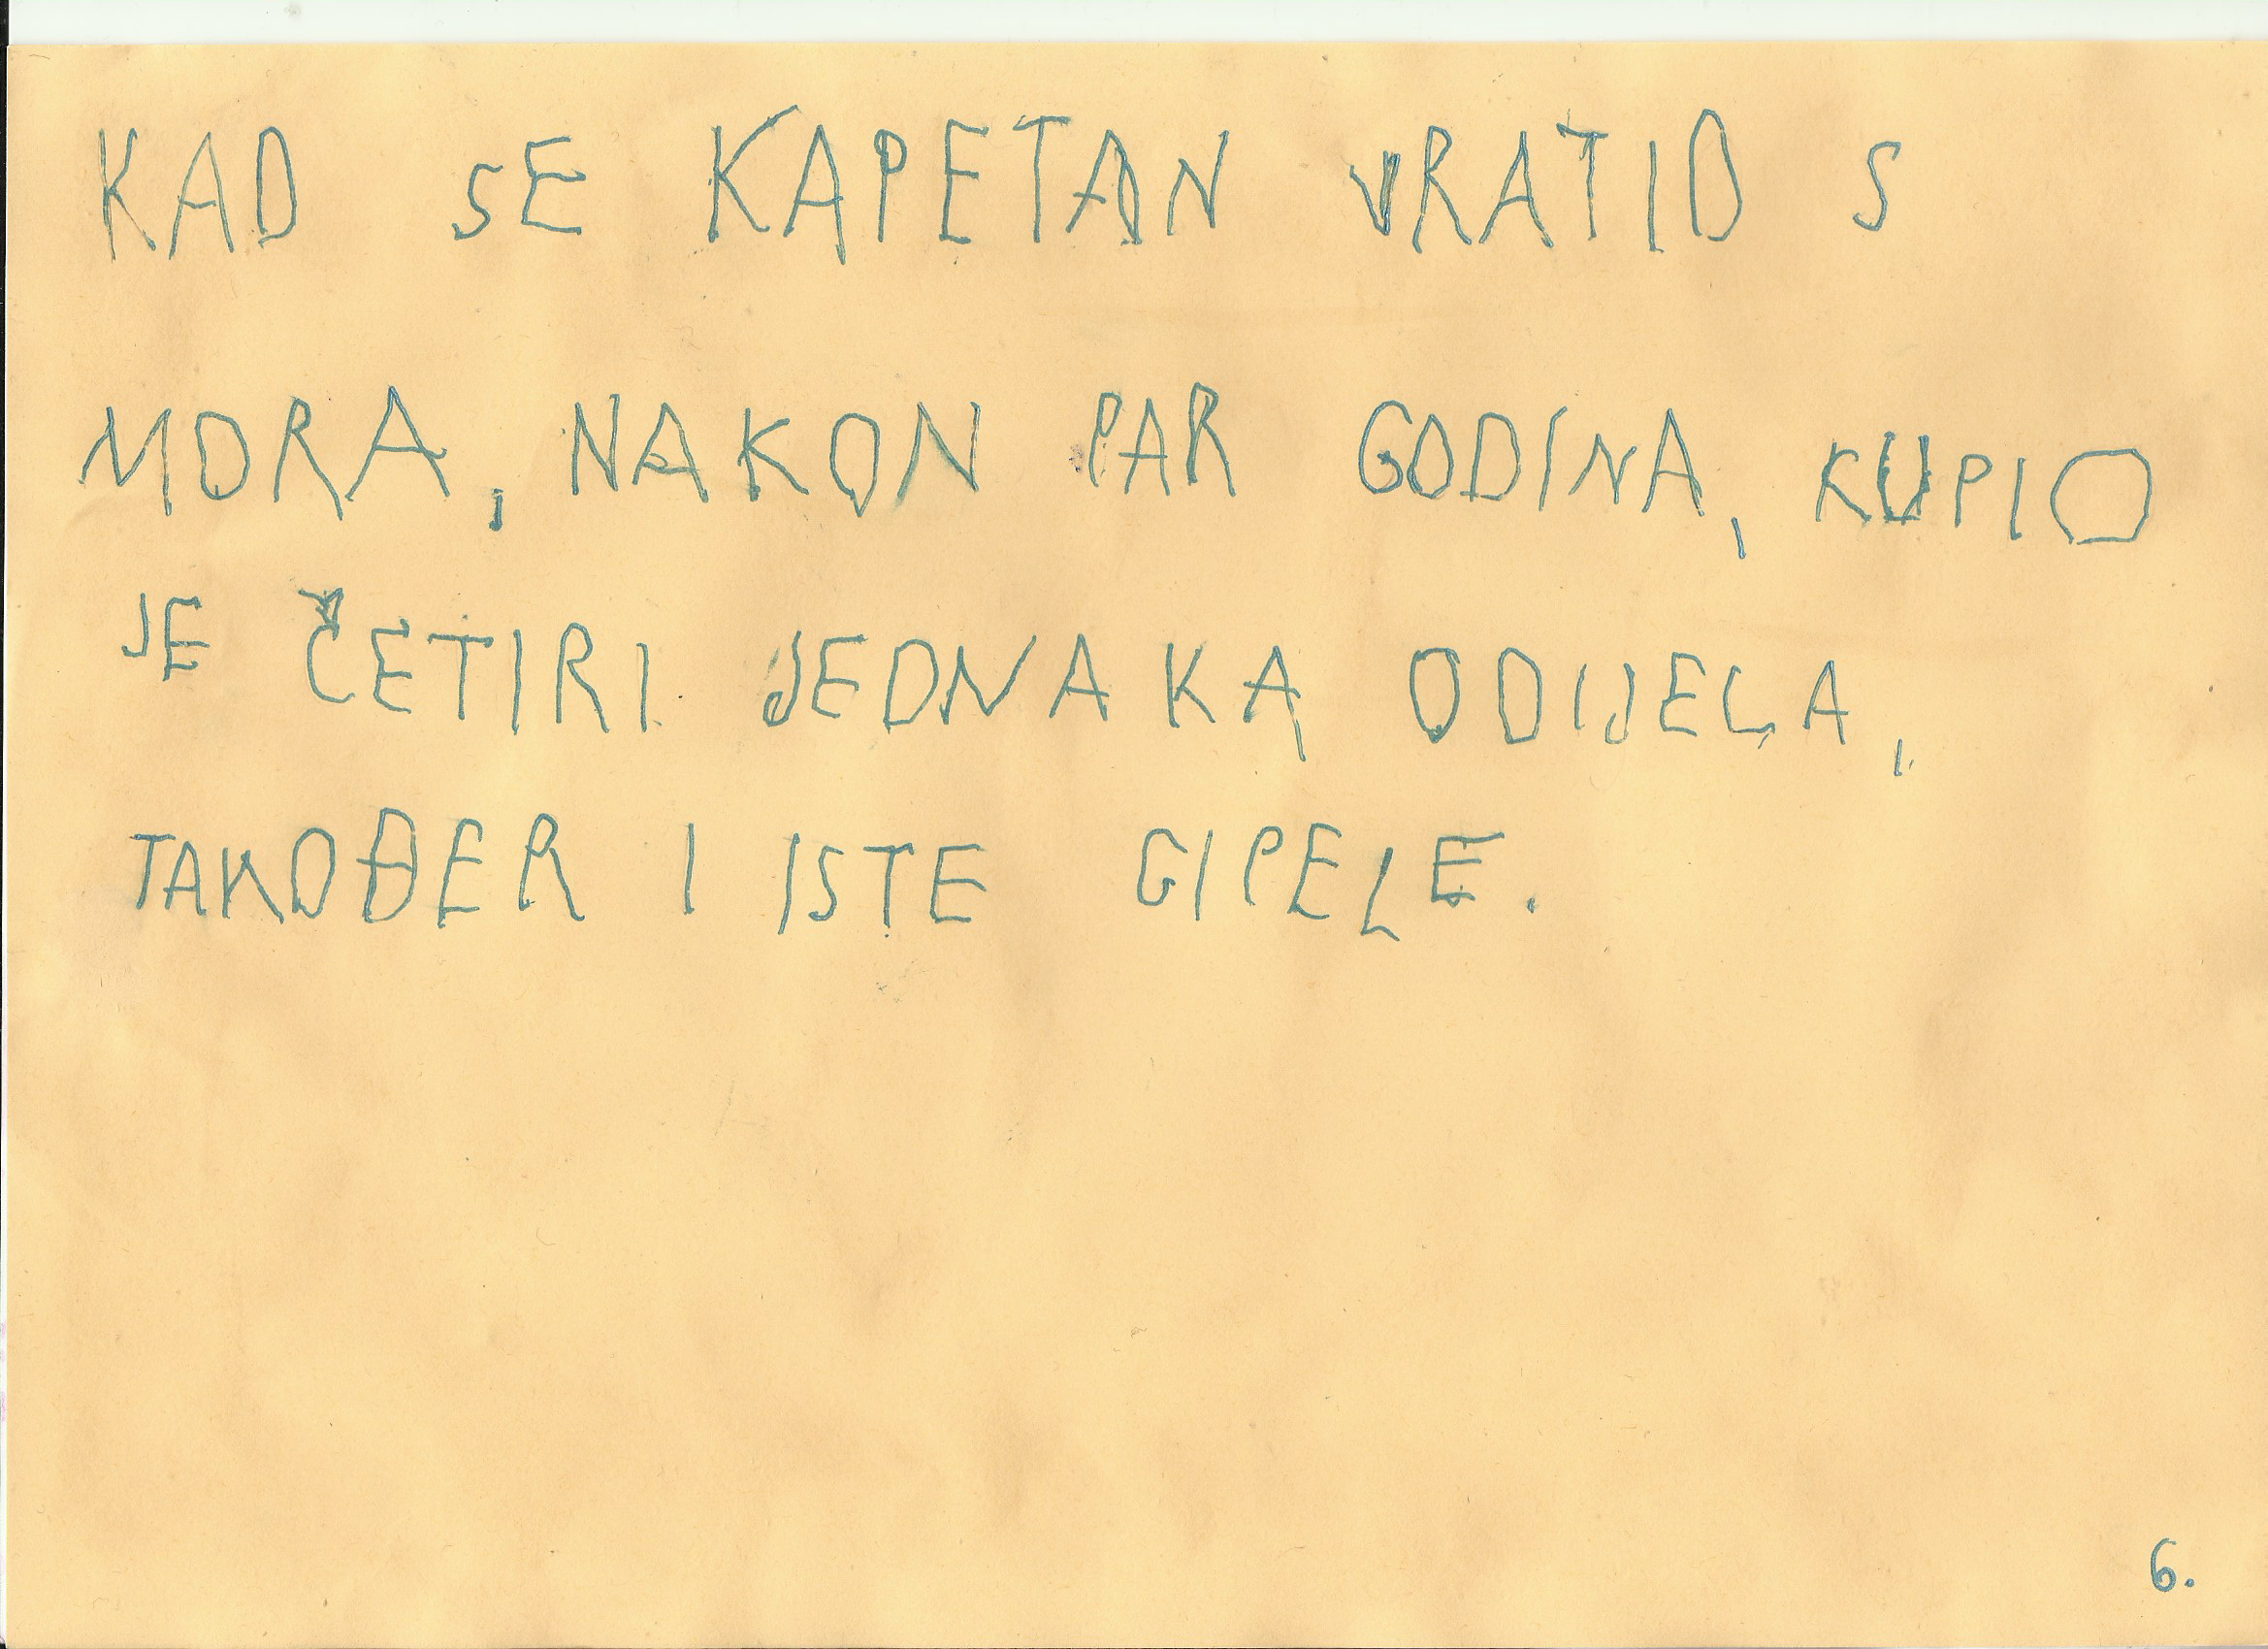 KAD SE KAPETAN VRATIO S
MORA, NAKON PAR GODINA, KUPIO
JE ČETIRI JEDNAKA ODIJELA,
TAKOĐER I ISTE CIPELE.
6.